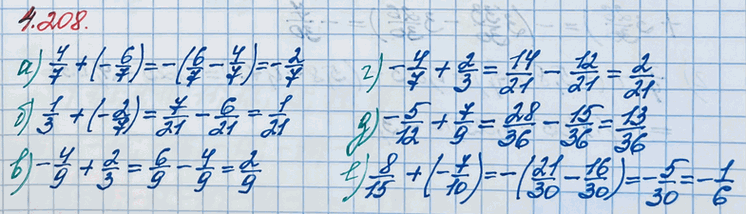 4.208.
а) 4/7 + (-6/7) = -(6/7 - 4/7) = -2/7
б) 1/3 + (-2/7) = 7/21 - 6/21 = 1/21
в) -4/9 + 2/3 = 6/9 - 4/9 = 2/9
г) -4/7 + 2/3 = 14/21 - 12/21 = 2/21
д) -5/12 + 7/9 = 28/36 - 15/36 = 13/36
е) 8/15 + (-7/10) = -(21/30 - 16/30) = -5/30 = -1/6